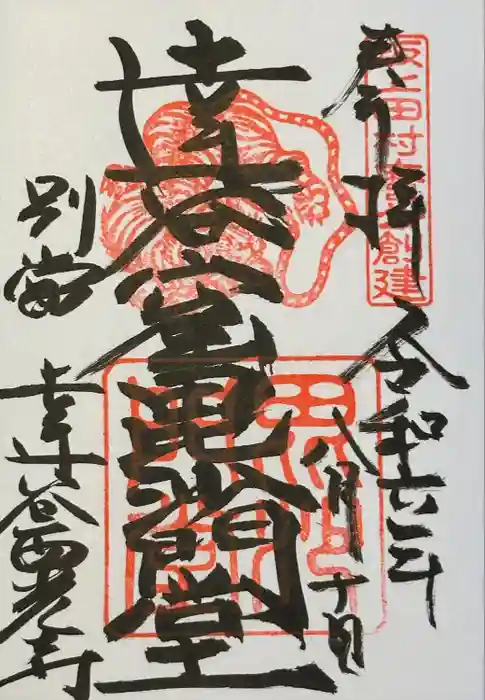 奉拝
坂上田村
創建
令和六年
八月十日
達谷窟毘沙門堂
別當
達谷西光寺